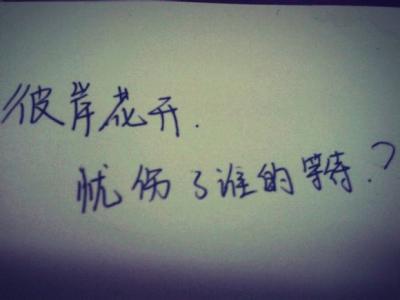 彼岸花开.
忧伤了谁的等待.?